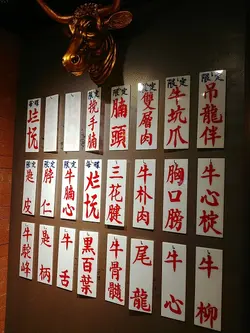 限定
吊龍伴
限定
牛坑爪
限定
雙層肉
限定
腩頭
限定
挽手腩
每碟
牛心椗
胸口膀
牛朴肉
三花腱
每碟
限定
牛腩心
限定
脖仁
限定
匙皮
牛柳
牛心
尾龍
牛骨髓
黑百葉
牛舌
匙柄
牛駝峰